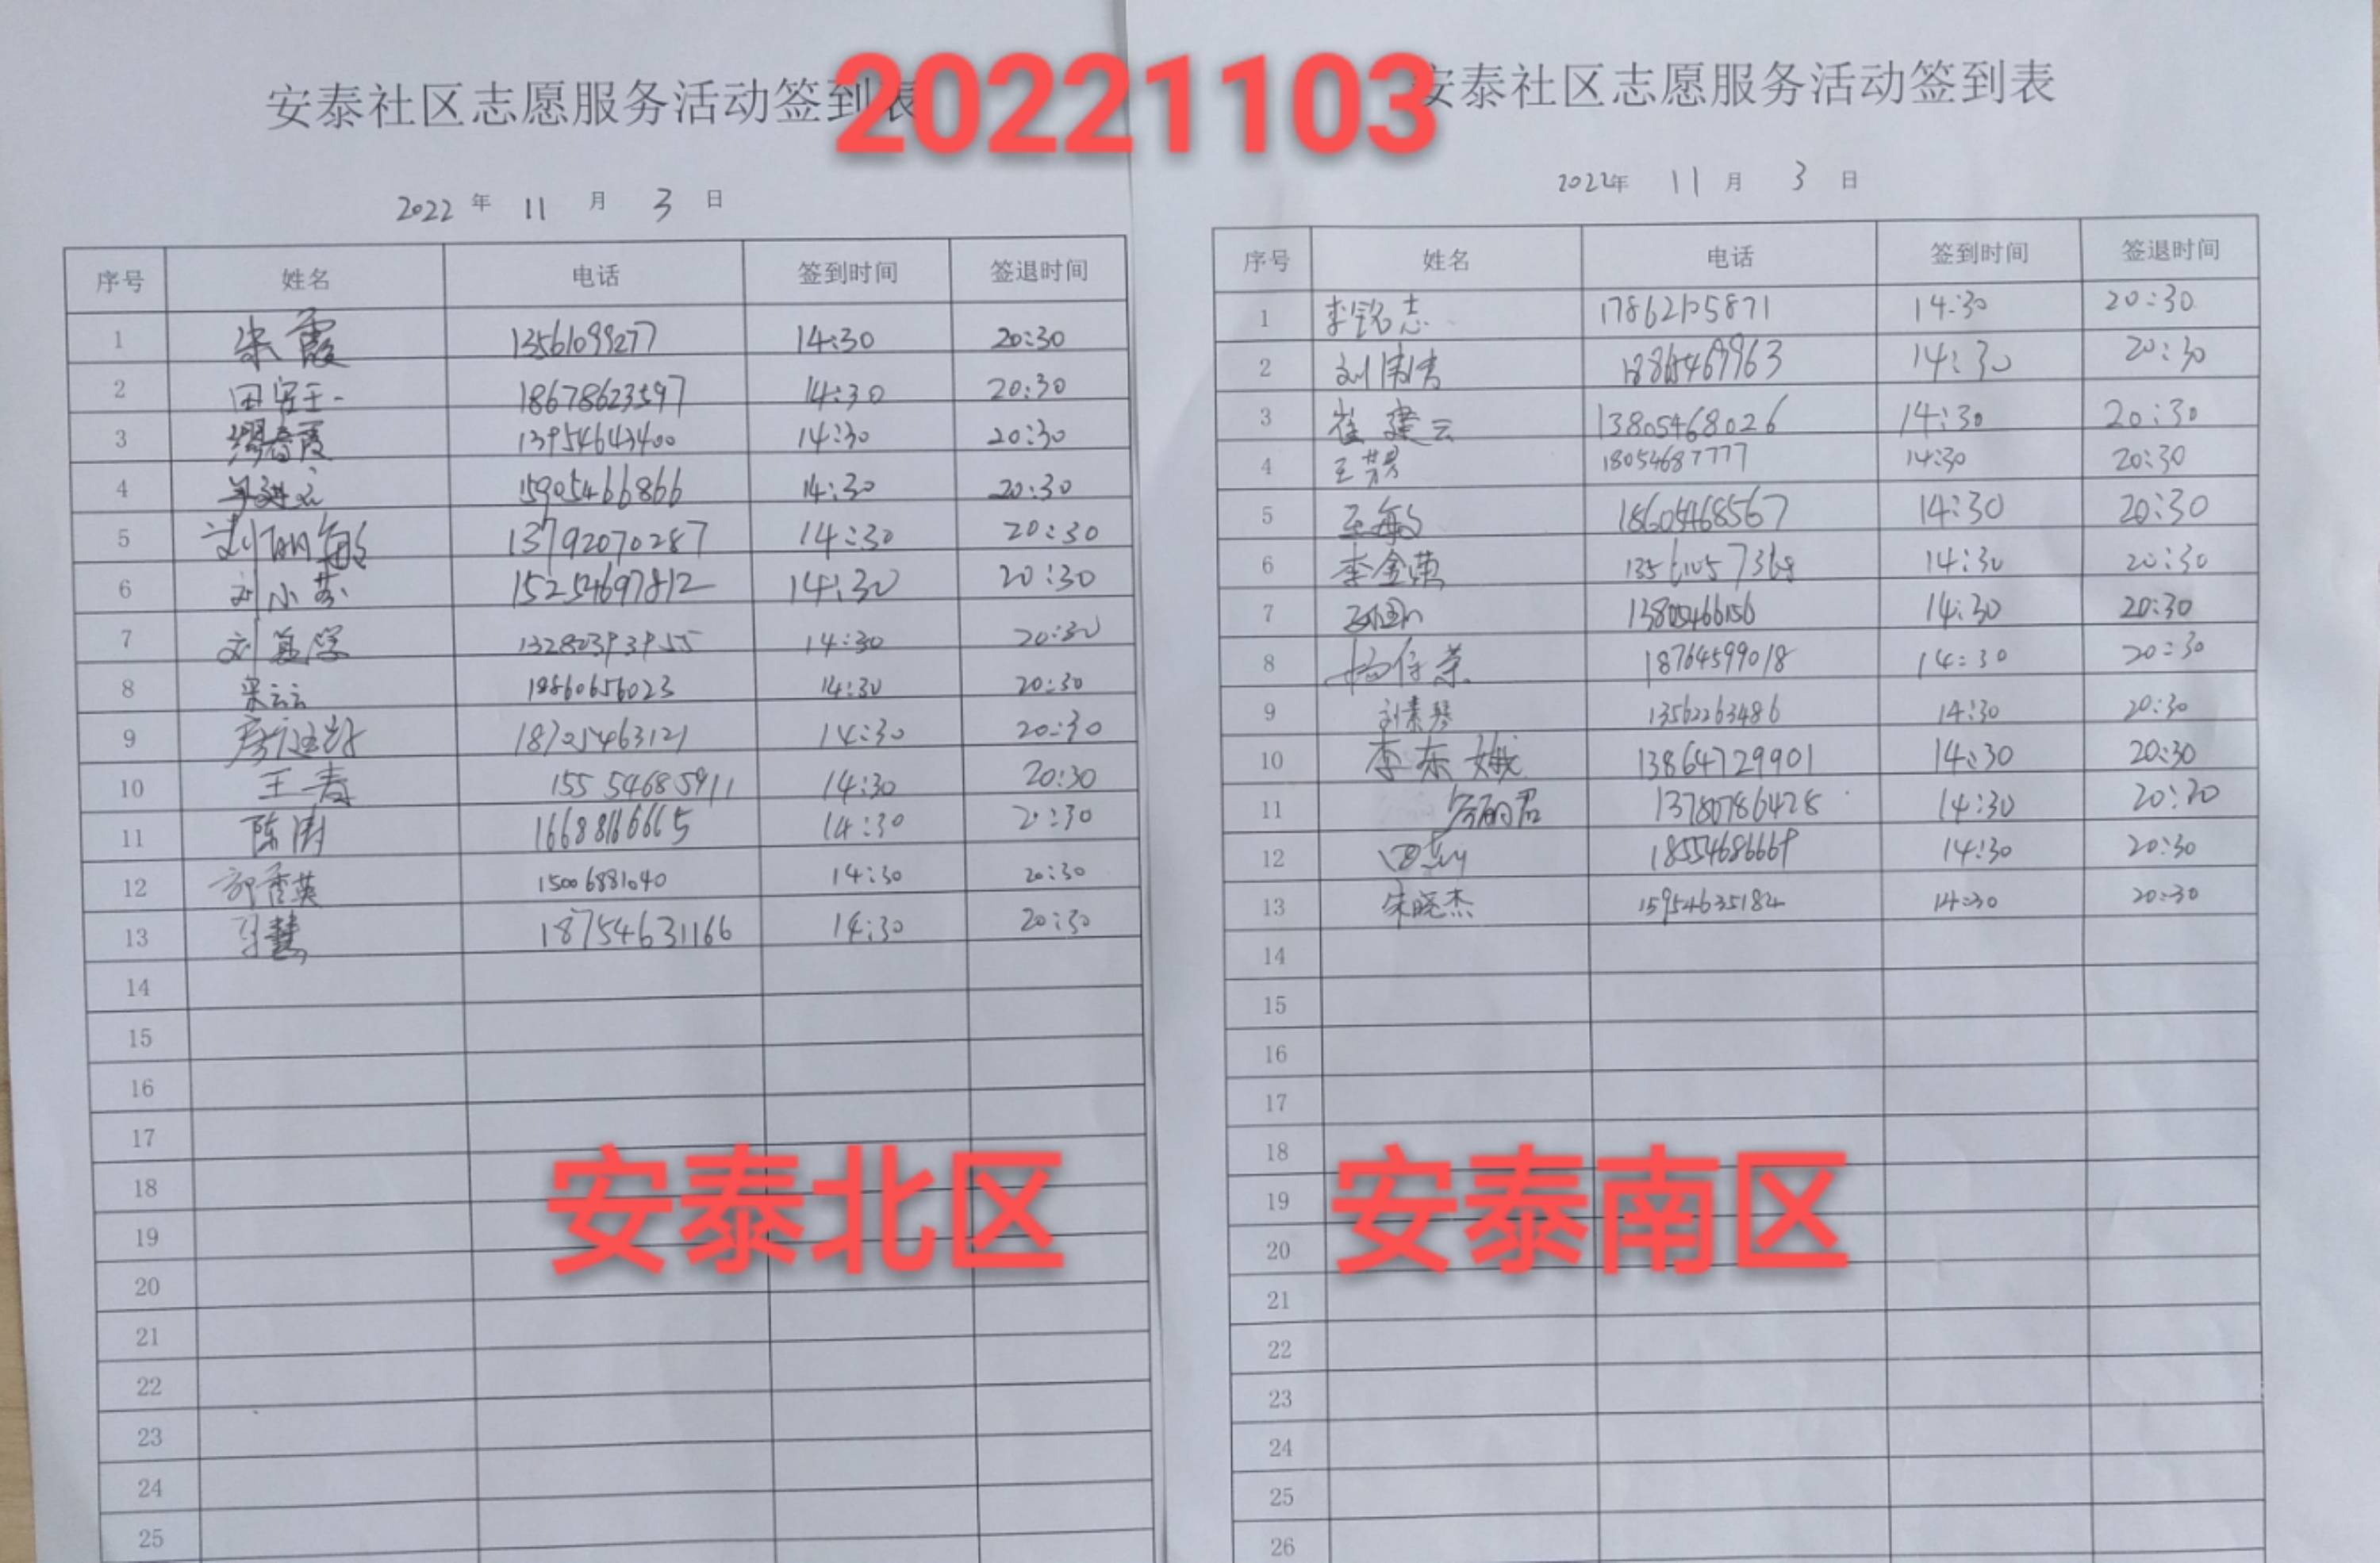 20221103
安泰社区志愿服务活动签到表
2022 年 11 月 3 日
序号 姓名 电话 签到时间 签退时间
1 朱霞 13561099277 14:30 20:30
2 18678623597 14:30 20:30
3 春霞 13954643400 14:30 20:30
4 15905466866 14:30 20:30
5 刘丽敏 13792070287 14:30 20:30
6 刘小芬 15254697812 14:30 20:30
7 刘 14:30 20:30
8 宋云云 14:30 20:30
9 14:30 20:30
10 王青 155 5468 5911 14:30 20:30
11 陈 16688166665 14:30 20:30
12 郭秀英 15006881040 14:30 20:30
13 马慧 18754631166 14:30 20:30
14
15
16
17
18
19
20
21
22
23
24
25
安泰北区
安泰社区志愿服务活动签到表
2022年 11 月 3 日
序号 姓名 电话 签到时间 签退时间
1 李铭志 14:30 20:30
2 刘 14:30 20:30
3 崔建云 13805468026 14:30 20:30
4 王 18054687777 14:30 20:30
5 王敏 18605468567 14:30 20:30
6 李金 14:30 20:30
7 14:30 20:30
8 杨 18764599018 14:30 20:30
9 刘素琴 13562263486 14:30 20:30
10 李东娥 13864729901 14:30 20:30
11 丽君 13780786428 14:30
12 14:30 20:30
13 朱晓杰 15954635182 14:30 20:30
14
15
16
17
18
19
20
21
22
23
24
25
26
安泰南区